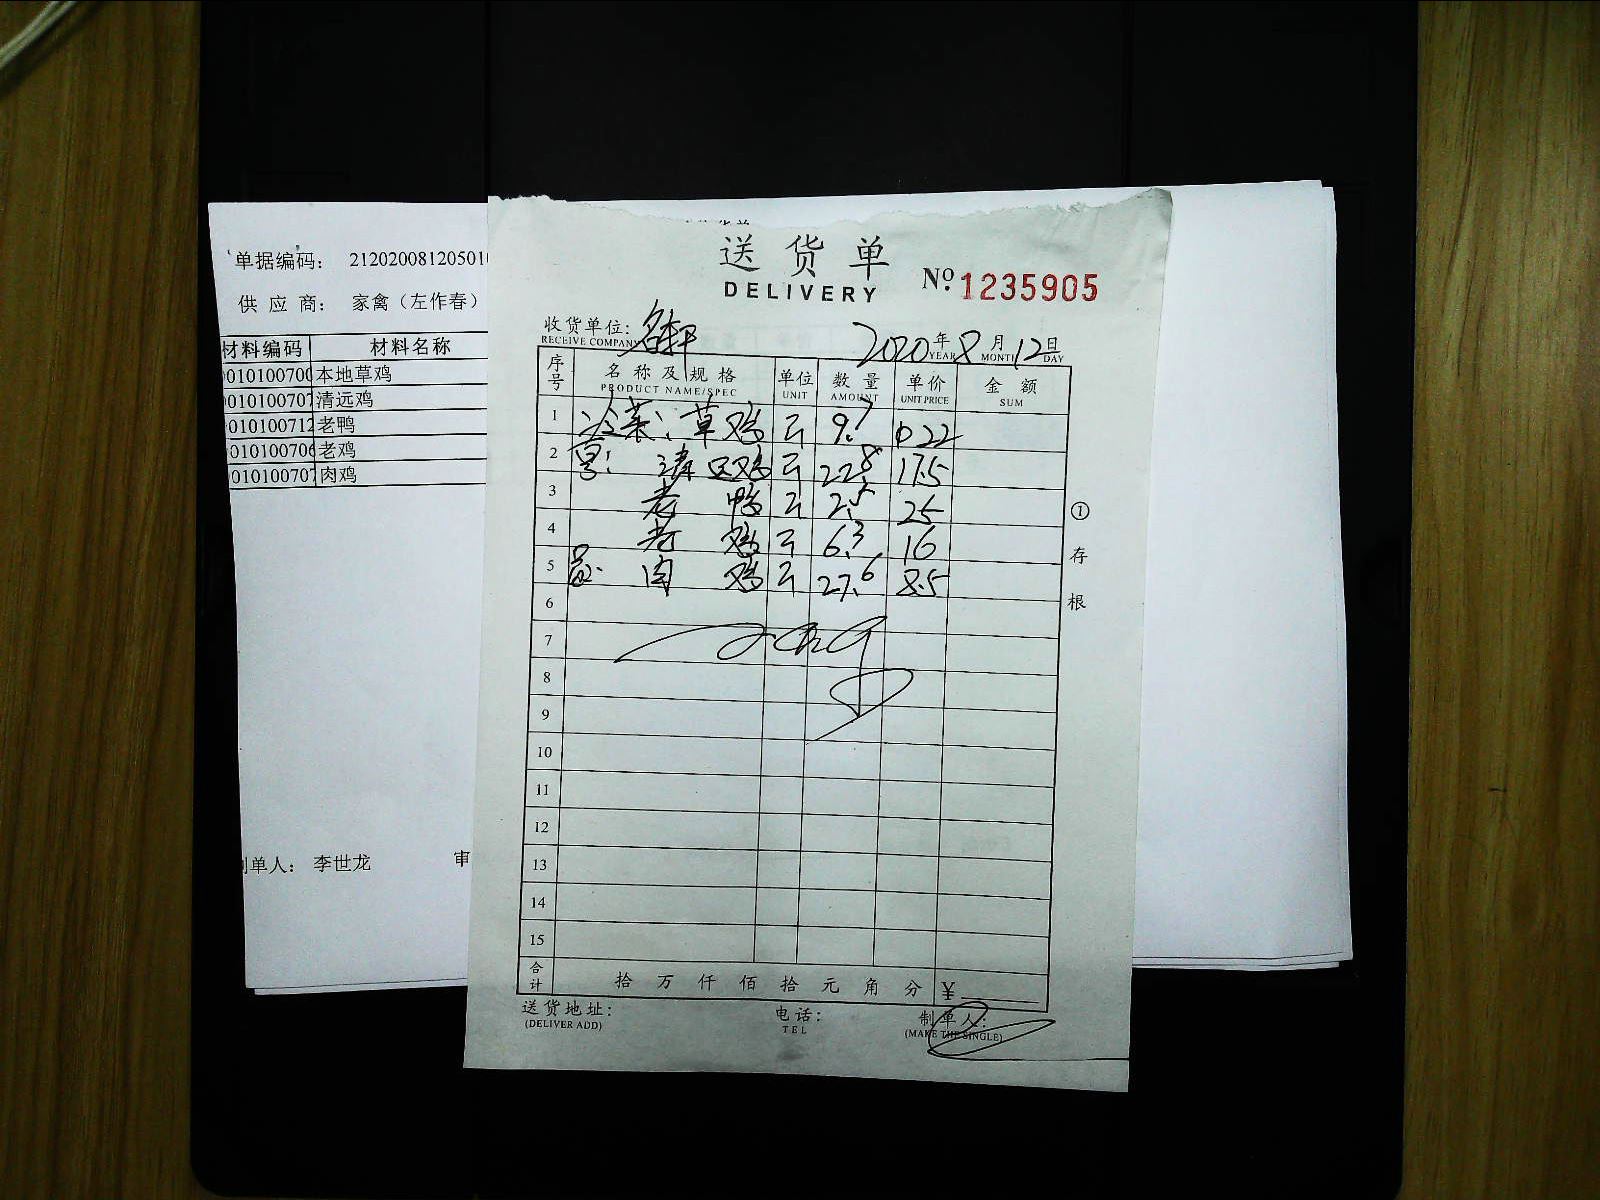 单据编码： 21202008120501
供 应 商： 家禽（左作春）
材料编码 材料名称
010100700 本地草鸡
010100707 清远鸡
010100712 老鸭
010100706 老鸡
010100707 肉鸡
制单人： 李世龙 审
送货单
DELIVERY
№ 1235905
收货单位： 名轩 2020年8月12日
RECEIVE COMPANY YEAR MONTH DAY
序号 名称及规格 单位 数量 单价 金额
PRODUCT NAME/SPEC UNIT AMOUNT UNIT PRICE SUM
1 冷菜：草鸡 斤 9.7 22
2 清远鸡 斤 22.8 17.5
3 老鸭 斤 2.5 25
4 老鸡 斤 6.3 16
5 肉鸡 斤 27.6 8.5
6
7
8
9
10
11
12
13
14
15
合计 拾 万 仟 佰 拾 元 角 分 ¥
①存根
送货地址： 电话： 制单人：
(DELIVER ADD) TEL (MAKE THE SINGLE)